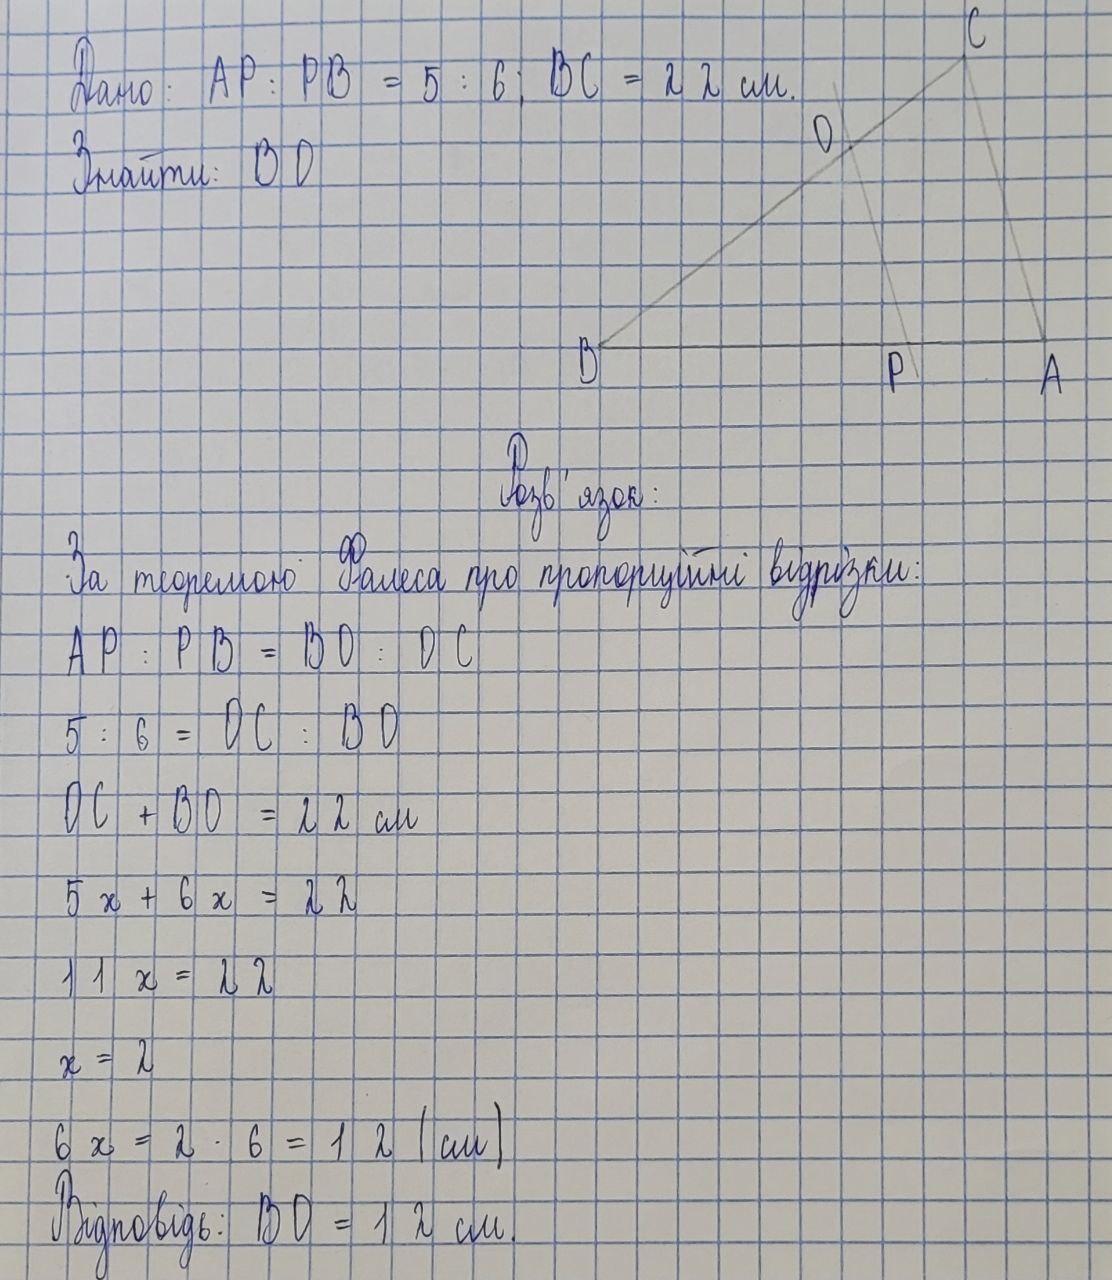 Дано: AP : PB = 5 : 6; BC = 22 см.
Знайти: BO
C
O
B
P
A
Розв'язок:
За теоремою Фалеса про пропорційні відрізки:
AP : PB = BO : OC
5 : 6 = OC : BO
OC + BO = 22 см
5x + 6x = 22
11x = 22
x = 2
6x = 2 · 6 = 12 (см)
Відповідь: BO = 12 см.